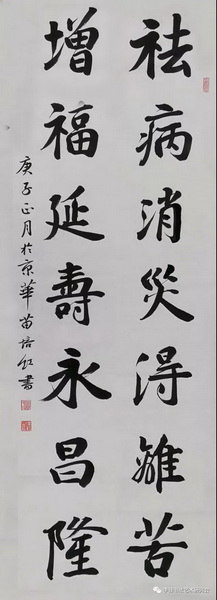 祛病消災得離苦
增福延壽永昌隆
庚子正月於京華苗培紅書